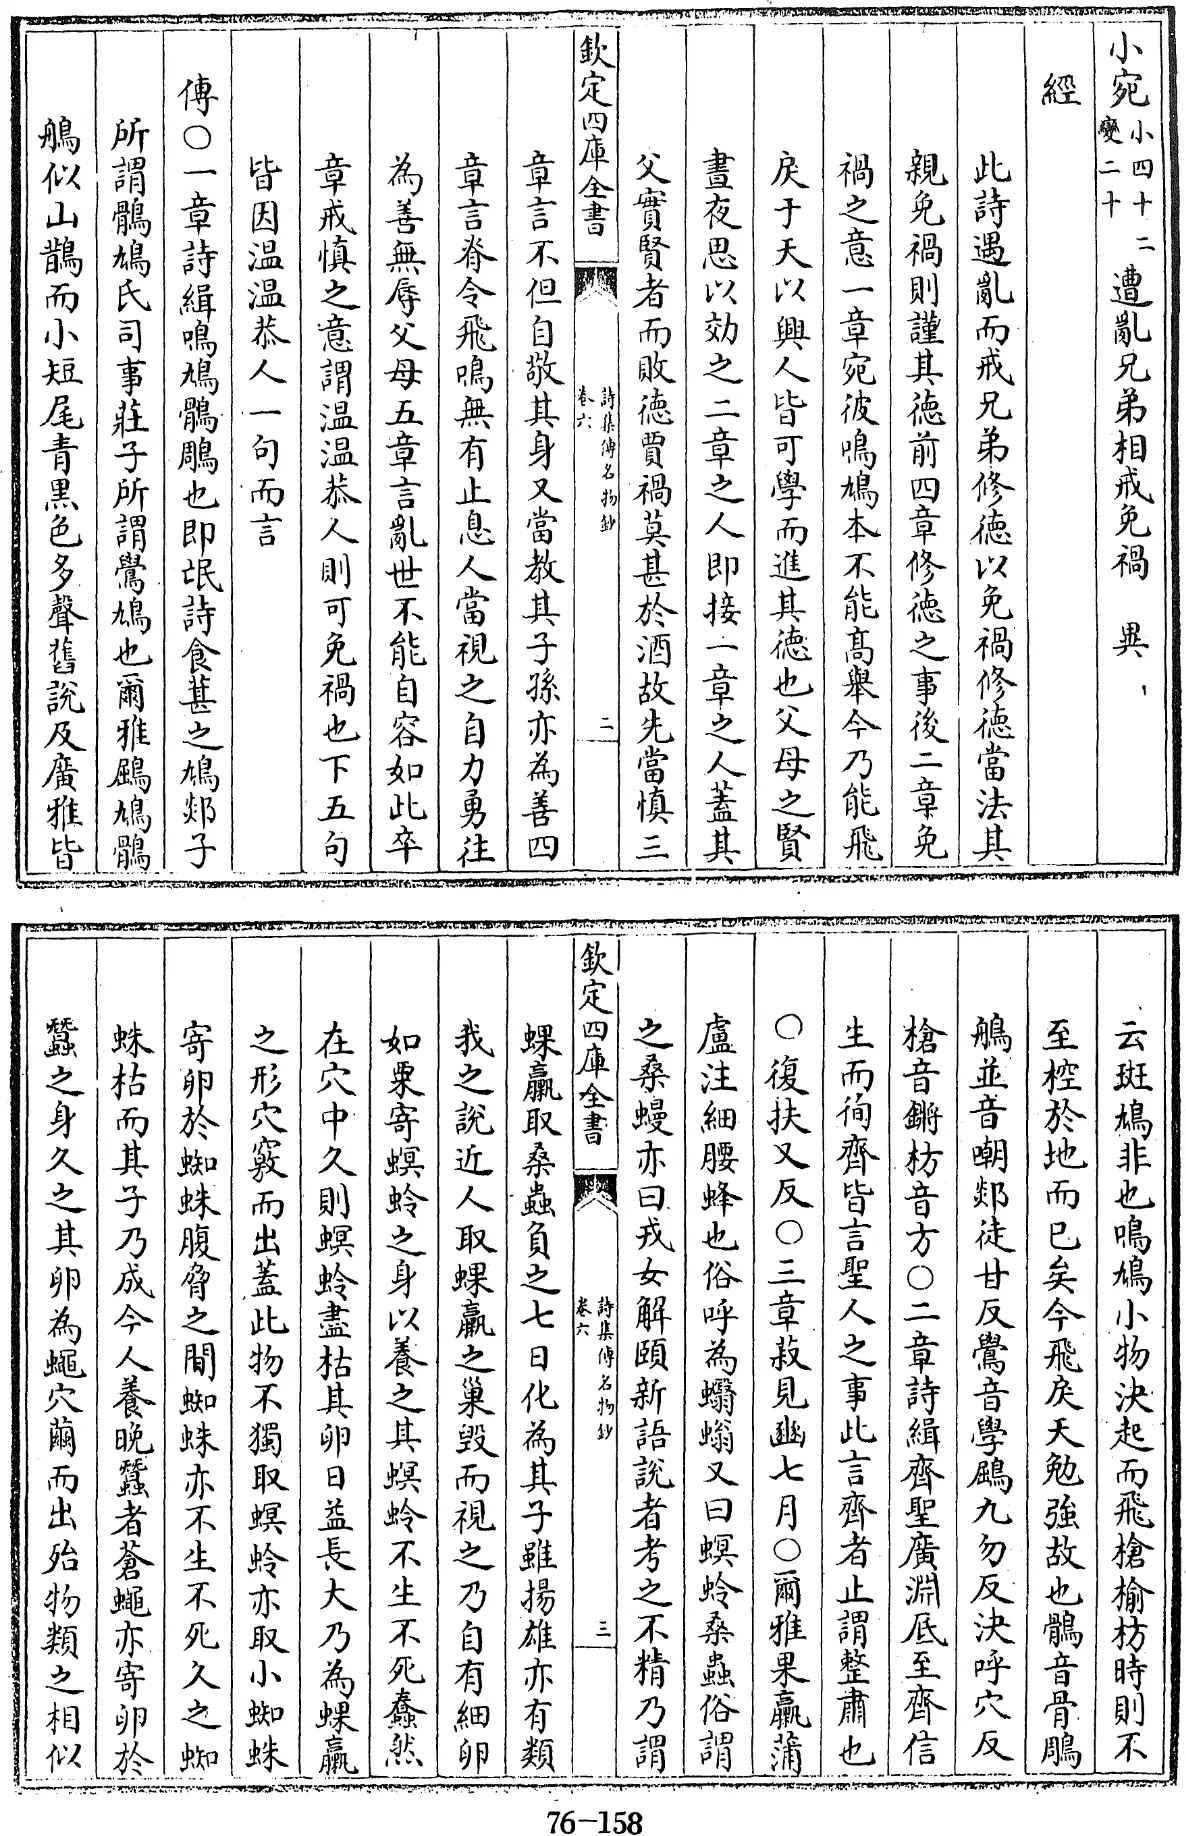 小宛小四十二變二十　遭亂兄弟相戒免禍　異
經
此詩遇亂而戒兄弟修徳以免禍修徳當法其
親免禍則謹其徳前四章修徳之事後二章免
禍之意一章宛彼鳴鳩本不能高舉今乃能飛
戾于天以興人皆可學而進其徳也父母之賢
晝夜思以効之二章之人即接一章之人蓋其
父實賢者而敗徳賈禍莫甚於酒故先當慎三
欽定四庫全書
詩集傳名物鈔
卷六
二
章言不但自敬其身又當教其子孫亦為善四
章言脊令飛鳴無有止息人當視之自力勇往
為善無辱父母五章言亂世不能自容如此卒
章戒慎之意謂温温恭人則可免禍也下五句
皆因温温恭人一句而言
傳○一章詩緝鳴鳩鶻鵰也即氓詩食葚之鳩郯子
所謂鶻鳩氏司事莊子所謂鷽鳩也爾雅鶌鳩鶻
鵃似山鵲而小短尾青黒色多聲舊説及廣雅皆
云斑鳩非也鳴鳩小物決起而飛槍榆枋時則不
至控於地而已矣今飛戾天勉強故也鶻音骨鵰
鵃並音嘲郯徒甘反鷽音學鶌九勿反決呼穴反
槍音鏘枋音方○二章詩緝齊聖廣淵厎至齊信
生而徇齊皆言聖人之事此言齊者止謂整肅也
○復扶又反○三章菽見豳七月○爾雅果蠃蒲
盧注細腰蜂也俗呼為蠮螉又曰螟蛉桑蟲俗謂
之桑蟃亦曰戎女解頤新語説者考之不精乃謂
欽定四庫全書
詩集傳名物鈔
卷六
三
蜾蠃取桑蟲負之七日化為其子雖揚雄亦有類
我之説近人取蜾蠃之巢毀而視之乃自有細卵
如粟寄螟蛉之身以養之其螟蛉不生不死蠢然
在穴中久則螟蛉盡枯其卵日益長大乃為蜾蠃
之形穴竅而出蓋此物不獨取螟蛉亦取小蜘蛛
寄卵於蜘蛛腹脅之間蜘蛛亦不生不死久之蜘
蛛枯而其子乃成今人養晩蠶者蒼蠅亦寄卵於
蠶之身久之其卵為蠅穴繭而出殆物類之相似
76-158